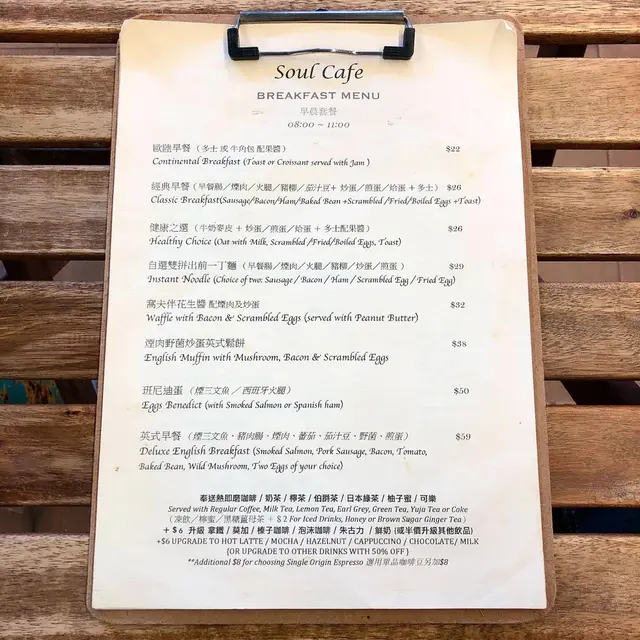 Soul Cafe
BREAKFAST MENU
早晨套餐
08:00 ~ 11:00
歐陸早餐（多士 或 牛角包 配果醬） $22
Continental Breakfast (Toast or Croissant served with Jam )
經典早餐（早餐腸／煙肉／火腿／豬柳／茄汁豆+ 炒蛋／煎蛋／烚蛋 + 多士） $26
Classic Breakfast(Sausage/Bacon/Ham/Baked Bean +Scrambled /Fried/Boiled Eggs +Toast)
健康之選（牛奶麥皮 + 炒蛋／煎蛋／烚蛋 + 多士配果醬） $26
Healthy Choice (Oat with Milk, Scrambled /Fried/Boiled Eggs, Toast)
自選雙拼出前一丁麵（早餐腸／煙肉／火腿／豬柳／炒蛋／煎蛋） $29
Instant Noodle (Choice of two: Sausage / Bacon / Ham / Scrambled Egg / Fried Egg)
窩夫伴花生醬 配煙肉及炒蛋 $32
Waffle with Bacon & Scrambled Eggs (served with Peanut Butter)
煙肉野菌炒蛋英式鬆餅 $38
English Muffin with Mushroom, Bacon & Scrambled Eggs
班尼迪蛋（煙三文魚／西班牙火腿） $50
Eggs Benedict (with Smoked Salmon or Spanish ham)
英式早餐（煙三文魚、豬肉腸、煙肉、蕃茄、茄汁豆、野菌、煎蛋） $59
Deluxe English Breakfast (Smoked Salmon, Pork Sausage, Bacon, Tomato,
Baked Bean, Wild Mushroom, Two Eggs of your choice)
奉送熱即磨咖啡 / 奶茶 / 檸茶 / 伯爵茶 / 日本綠茶 / 柚子蜜 / 可樂
Served with Regular Coffee, Milk Tea, Lemon Tea, Earl Grey, Green Tea, Yuju Tea or Coke
（凍飲／檸蜜／黑糖薑母茶 + $2 For Iced Drinks, Honey or Brown Sugar Ginger Tea）
+ $6 升級 拿鐵 / 莫加 / 榛子咖啡 / 泡沫咖啡 / 朱古力 / 鮮奶 (或半價升級其他飲品)
+$6 UPGRADE TO HOT LATTE / MOCHA / HAZELNUT / CAPPUCCINO / CHOCOLATE/ MILK
(OR UPGRADE TO OTHER DRINKS WITH 50% OFF )
**Additional $8 for choosing Single Origin Espresso 選用單品咖啡豆另加$8